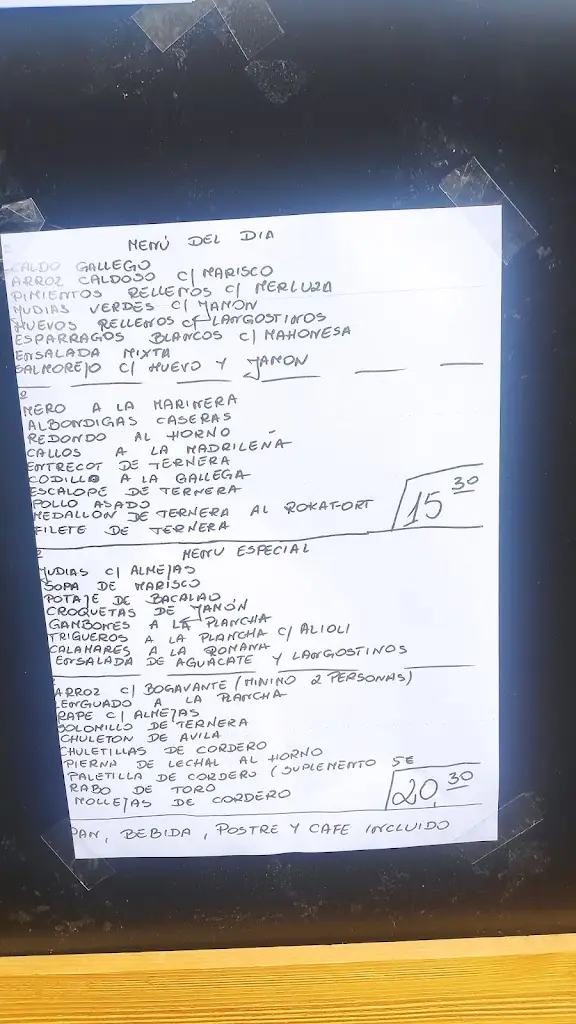 MENÚ DEL DIA
CALDO GALLEGO
ARROZ CALDOSO C/ MARISCO
PIMIENTOS RELLENOS C/ MERLUZA
JUDIAS VERDES C/ JAMÓN
HUEVOS RELLENOS C/ LANGOSTINOS
ESPARRAGOS BLANCOS C/ MAHONESA
ENSALADA MIXTA
SALMOREJO C/ HUEVO Y JAMON
MERO A LA MARINERA
ALBONDIGAS CASERAS
REDONDO AL HORNO
CALLOS A LA MADRILEÑA
ENTRECOT DE TERNERA
CODILLO A LA GALLEGA
ESCALOPE DE TERNERA
POLLO ASADO
MEDALLON DE TERNERA AL ROKAFORT
FILETE DE TERNERA
15 30
MENU ESPECIAL
JUDIAS C/ ALMEJAS
SOPA DE MARISCO
POTAJE DE BACALAO
CROQUETAS DE JAMÓN
GAMBONES A LA PLANCHA
TRIGUEROS A LA PLANCHA C/ ALIOLI
CALAMARES A LA ROMANA
ENSALADA DE AGUACATE Y LANGOSTINOS
ARROZ C/ BOGAVANTE (MINIMO 2 PERSONAS)
LENGUADO A LA PLANCHA
RAPE C/ ALMEJAS
SOLOMILLO DE TERNERA
CHULETON DE AVILA
CHULETILLAS DE CORDERO
PIERNA DE LECHAL AL HORNO
PALETILLA DE CORDERO (SUPLEMENTO 5€
RABO DE TORO
MOLLEJAS DE CORDERO
20,30
PAN, BEBIDA, POSTRE Y CAFE INCLUIDO